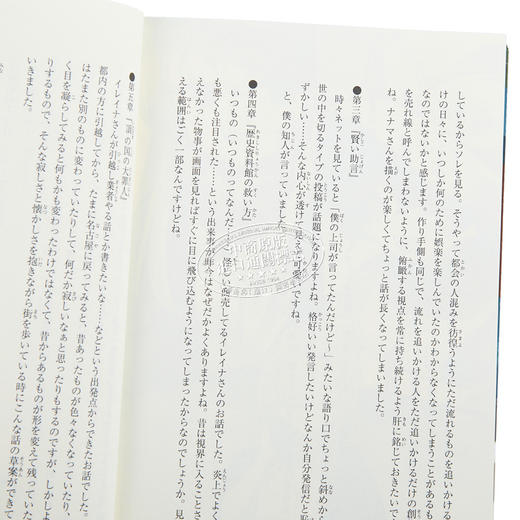 しているからソレを見る。そうやって都会の人混みを彷徨うようにただ流れるものを追いかける
けの日々に、いつしか何のために娯楽を楽しんでいたのかわからなくなってしまうことがあるも
なのではないかと感じます。作り手側も同じで、流れを追いかける人をただ追いかけるだけの創
を売れ線と呼んでしまわないように、俯瞰する視点を常に持ち続けるよう肝に銘じておきたいで
ね。ナナマさんを描くのが楽しくてちょっと話が長くなってしまいました。
●第三章『賢い助言』
時々ネットを見ていると「僕の上司が言ってたんだけど〜」みたいな語り口でちょっと斜めから
世の中を切るタイプの投稿が話題になりますよね。格好いい発言したいけどなんか自分発信だと恥
ずかしい……そんな内心が透けて見えて可愛いですね。
と、僕の知人が言っていました。
●第四章『歴史資料館の救い方』
いつもの（いつものってなんだ……）怪しい商売してるイレイナさんのお話でした。炎上でよく
も悪くも注目された……という出来事が昨今はなぜだかよくありますよね。昔は視界に入ること
えなかった物事が画面を見ればすぐに目に飛び込むようになってしまったからなのでしょうか。見
える範囲はごく一部なんですけどね。
●第五章『の国の大罪人』
イレイナさんが引越し業者やる話とか書きたいな……などという出発点からできたお話でした。
都内の方に引越してから、たまに名古屋に戻ってみると、昔あったものが色々なくなっていたり、
はたまた別のものに変わっていたりして、何だか寂しいなぁと思ったりもするのですが、しかしよ
く目を凝らしてみると何もかも変わったわけではなくて、昔からあるものが形を変えて残っていた
りするもので、そんな寂しさと懐かしさを抱きながら街を歩いている時にこんな話の草案ができて
いきました。